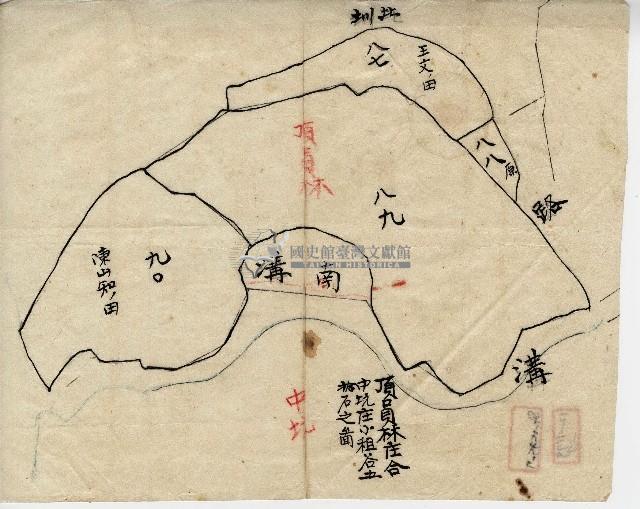 北圳
八七
王文ノ田
八八
原
路
頂員林
八九
九〇
陳山知ノ田
國史館臺灣文獻館
TAIWAN HISTORICA
南溝
溝
中坑
頂員林庄合
中坑庄小租谷五
拾石之圖